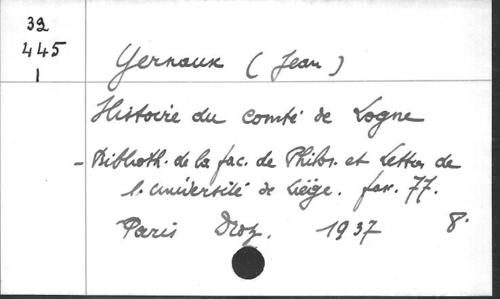 39
445
1
Yernaux (Jean)
Histoire du comté de Logne
- Biblioth. de la fac. de Philos. et Lettres de
l'université de Liége. fasc. 77.
Paris Droz. 1937 8°